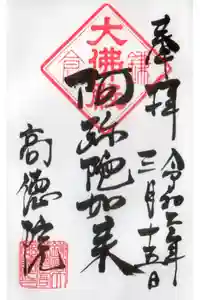 奉拝
令和二年
三月十五日
大佛殿
阿弥陀如来
高徳院